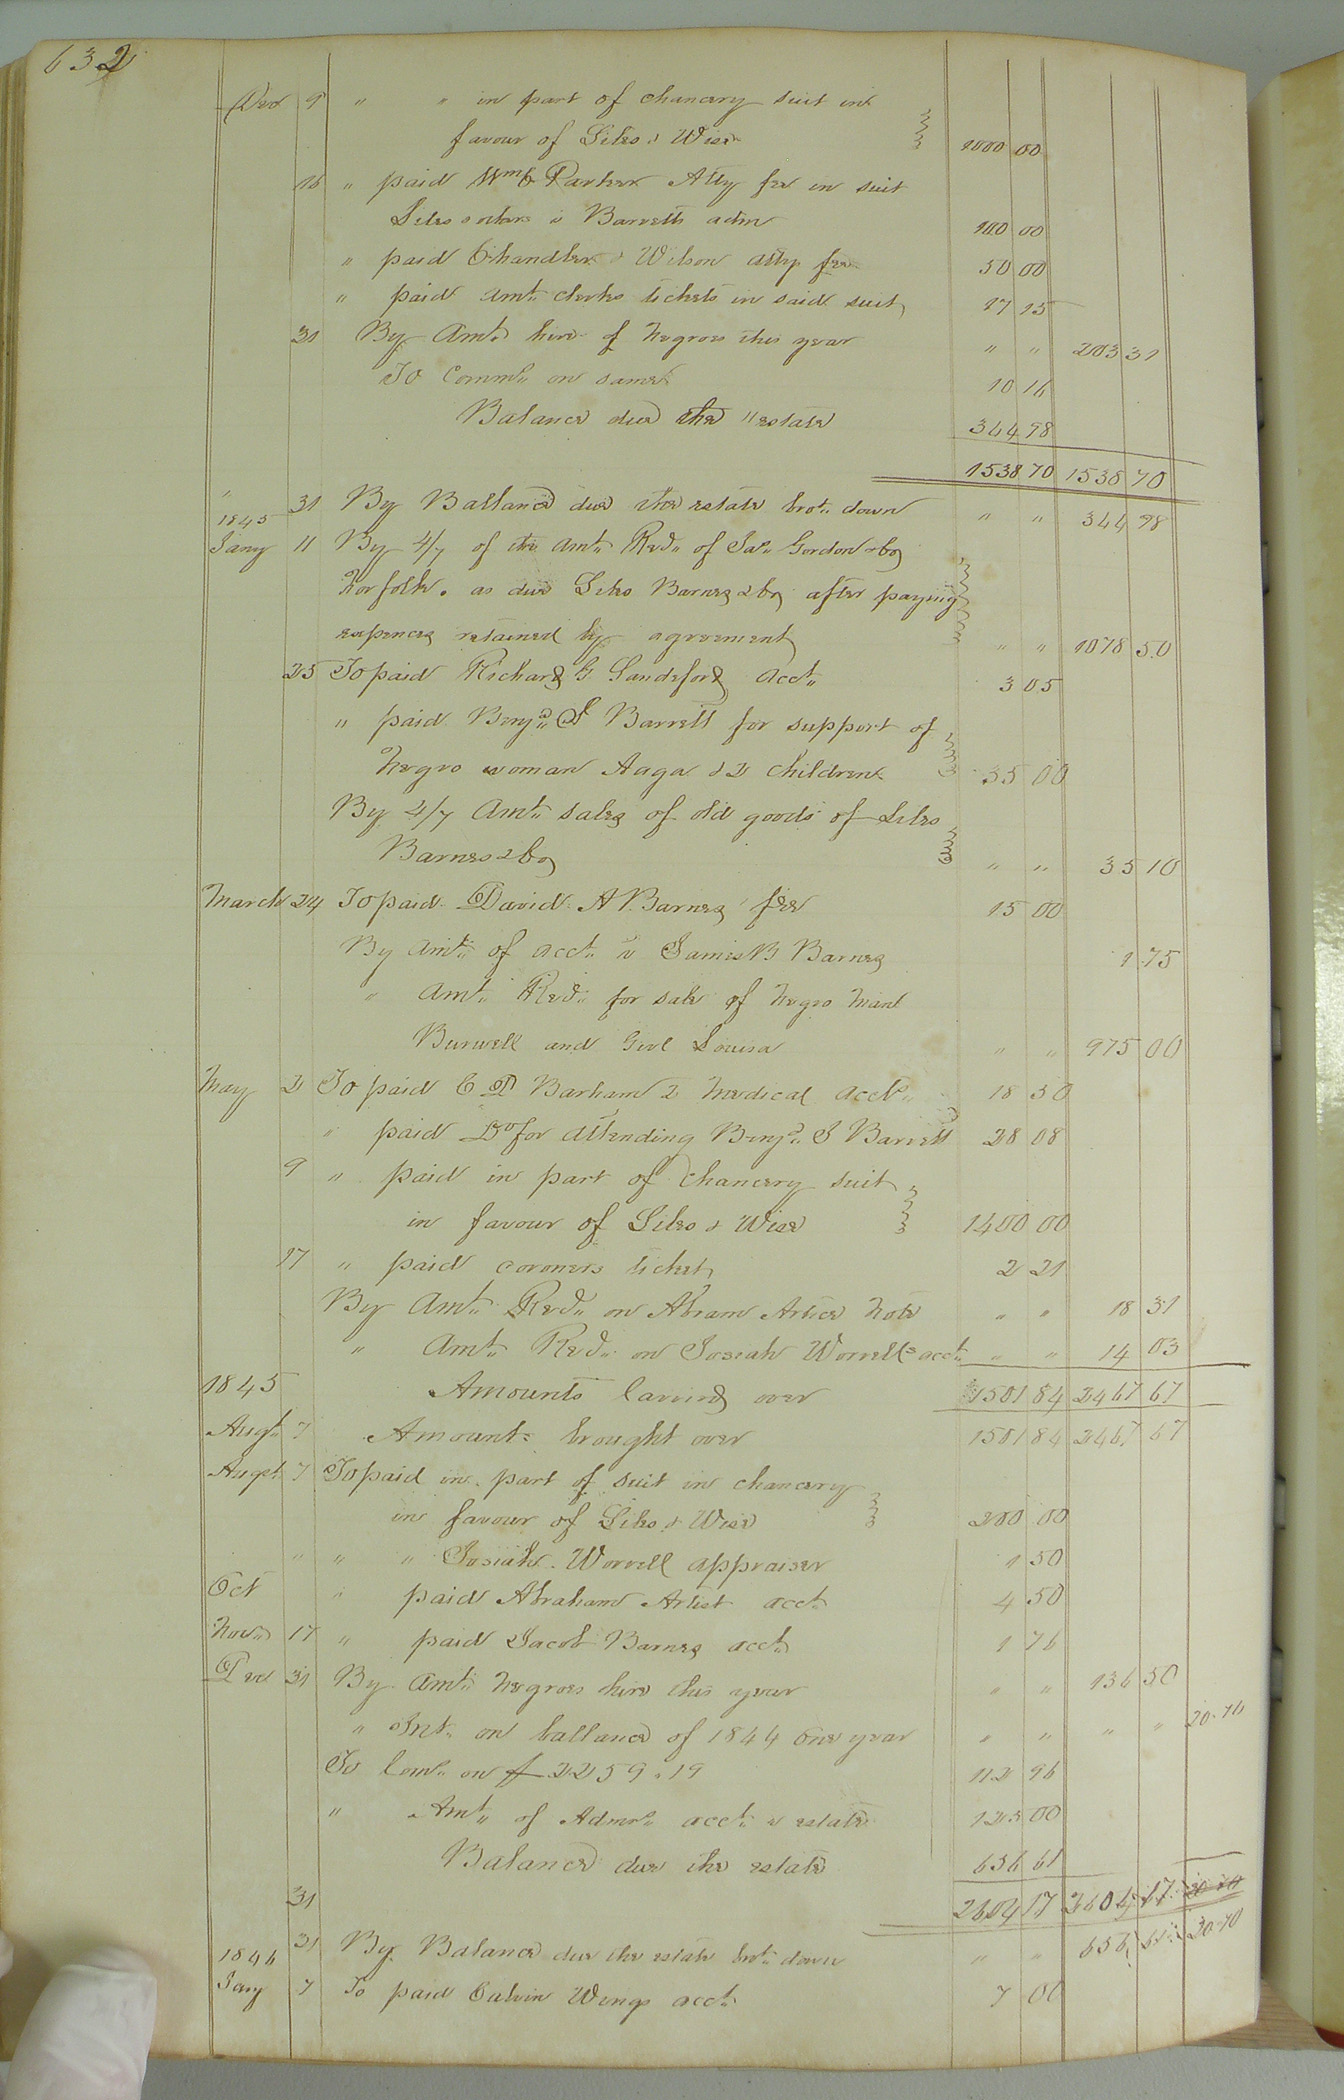 632
Dec 9 " " in part of chancery suit in
favour of Liles & Wise 1000 00
16 " paid Wm C Parker Atty fee in suit
Liles & others v Barretts adm 100 00
" paid Chandler & Wilson atty fee 50 00
" paid amt. clerks tickets in said suit 17 15
31 By Amt. hire of Negroes this year " " 203 31
To Comms. on same 10 16
Balance due the " estate 344 98
1538 70 1538 70
" 31 By Ballance due the estate brot. down " " 344 98
1845
Jany 11 By 4/7 of the amt. Recd. of Jas. Gordon & Co
Norfolk. as due Liles Barnes & Co after paying
expences retained by agreement " " 1078 50
25 To paid Richard G Sandsford acct. 3 05
" paid Benjn. S Barrett for support of
Negro woman Aaga & 2 children 35 00
By 4/7 Amt. sales of old goods of Liles
Barnes & Co " " 35 10
March 24 To paid David A Barnes fee 15 00
By amt. of acct. v James B Barnes 1 75
" Amt. Recd. for sale of Negro Man
Burwell and Girl Louisa " " 975 00
May 2 To paid C D Barham 2 Medical accts. 18 50
" paid Do for attending Benjn. S Barrett 28 08
9 " paid in part of chancery suit
in favour of Liles & Wise 1400 00
17 " paid coroners ticket 2 21
By Amt. Recd. on Abram Artice Note " " 18 31
" Amt. Recd. on Josiah Worrells acct. " " 14 03
1845 Amounts Carried over 1501 84 2467 67
Augt. 7 Amounts brought over 1501 84 2467 67
Augst. 7 To paid in part of suit in chancery
in favour of Liles & Wise 200 00
" " " Josiah Worrell appraiser 1 50
Oct " paid Abraham Artist acct. 4 50
Novr. 17 " paid Jacob Barnes acct. 1 76
Dec 31 By Amt. Negroes hire this year " " 136 50
" Int. on ballance of 1844 one year " " " " 20.70
To Com. on $2259.19 112 96
" Amt. of Admrs. acct. v estate 125 00
Balance due the estate 656 61
31 2604 17 2604 17 20 70
31 By Balance due the estate brot. down " " 656 61 20.70
1846
Jany 7 To paid Calvin Wengs acct. 7 00